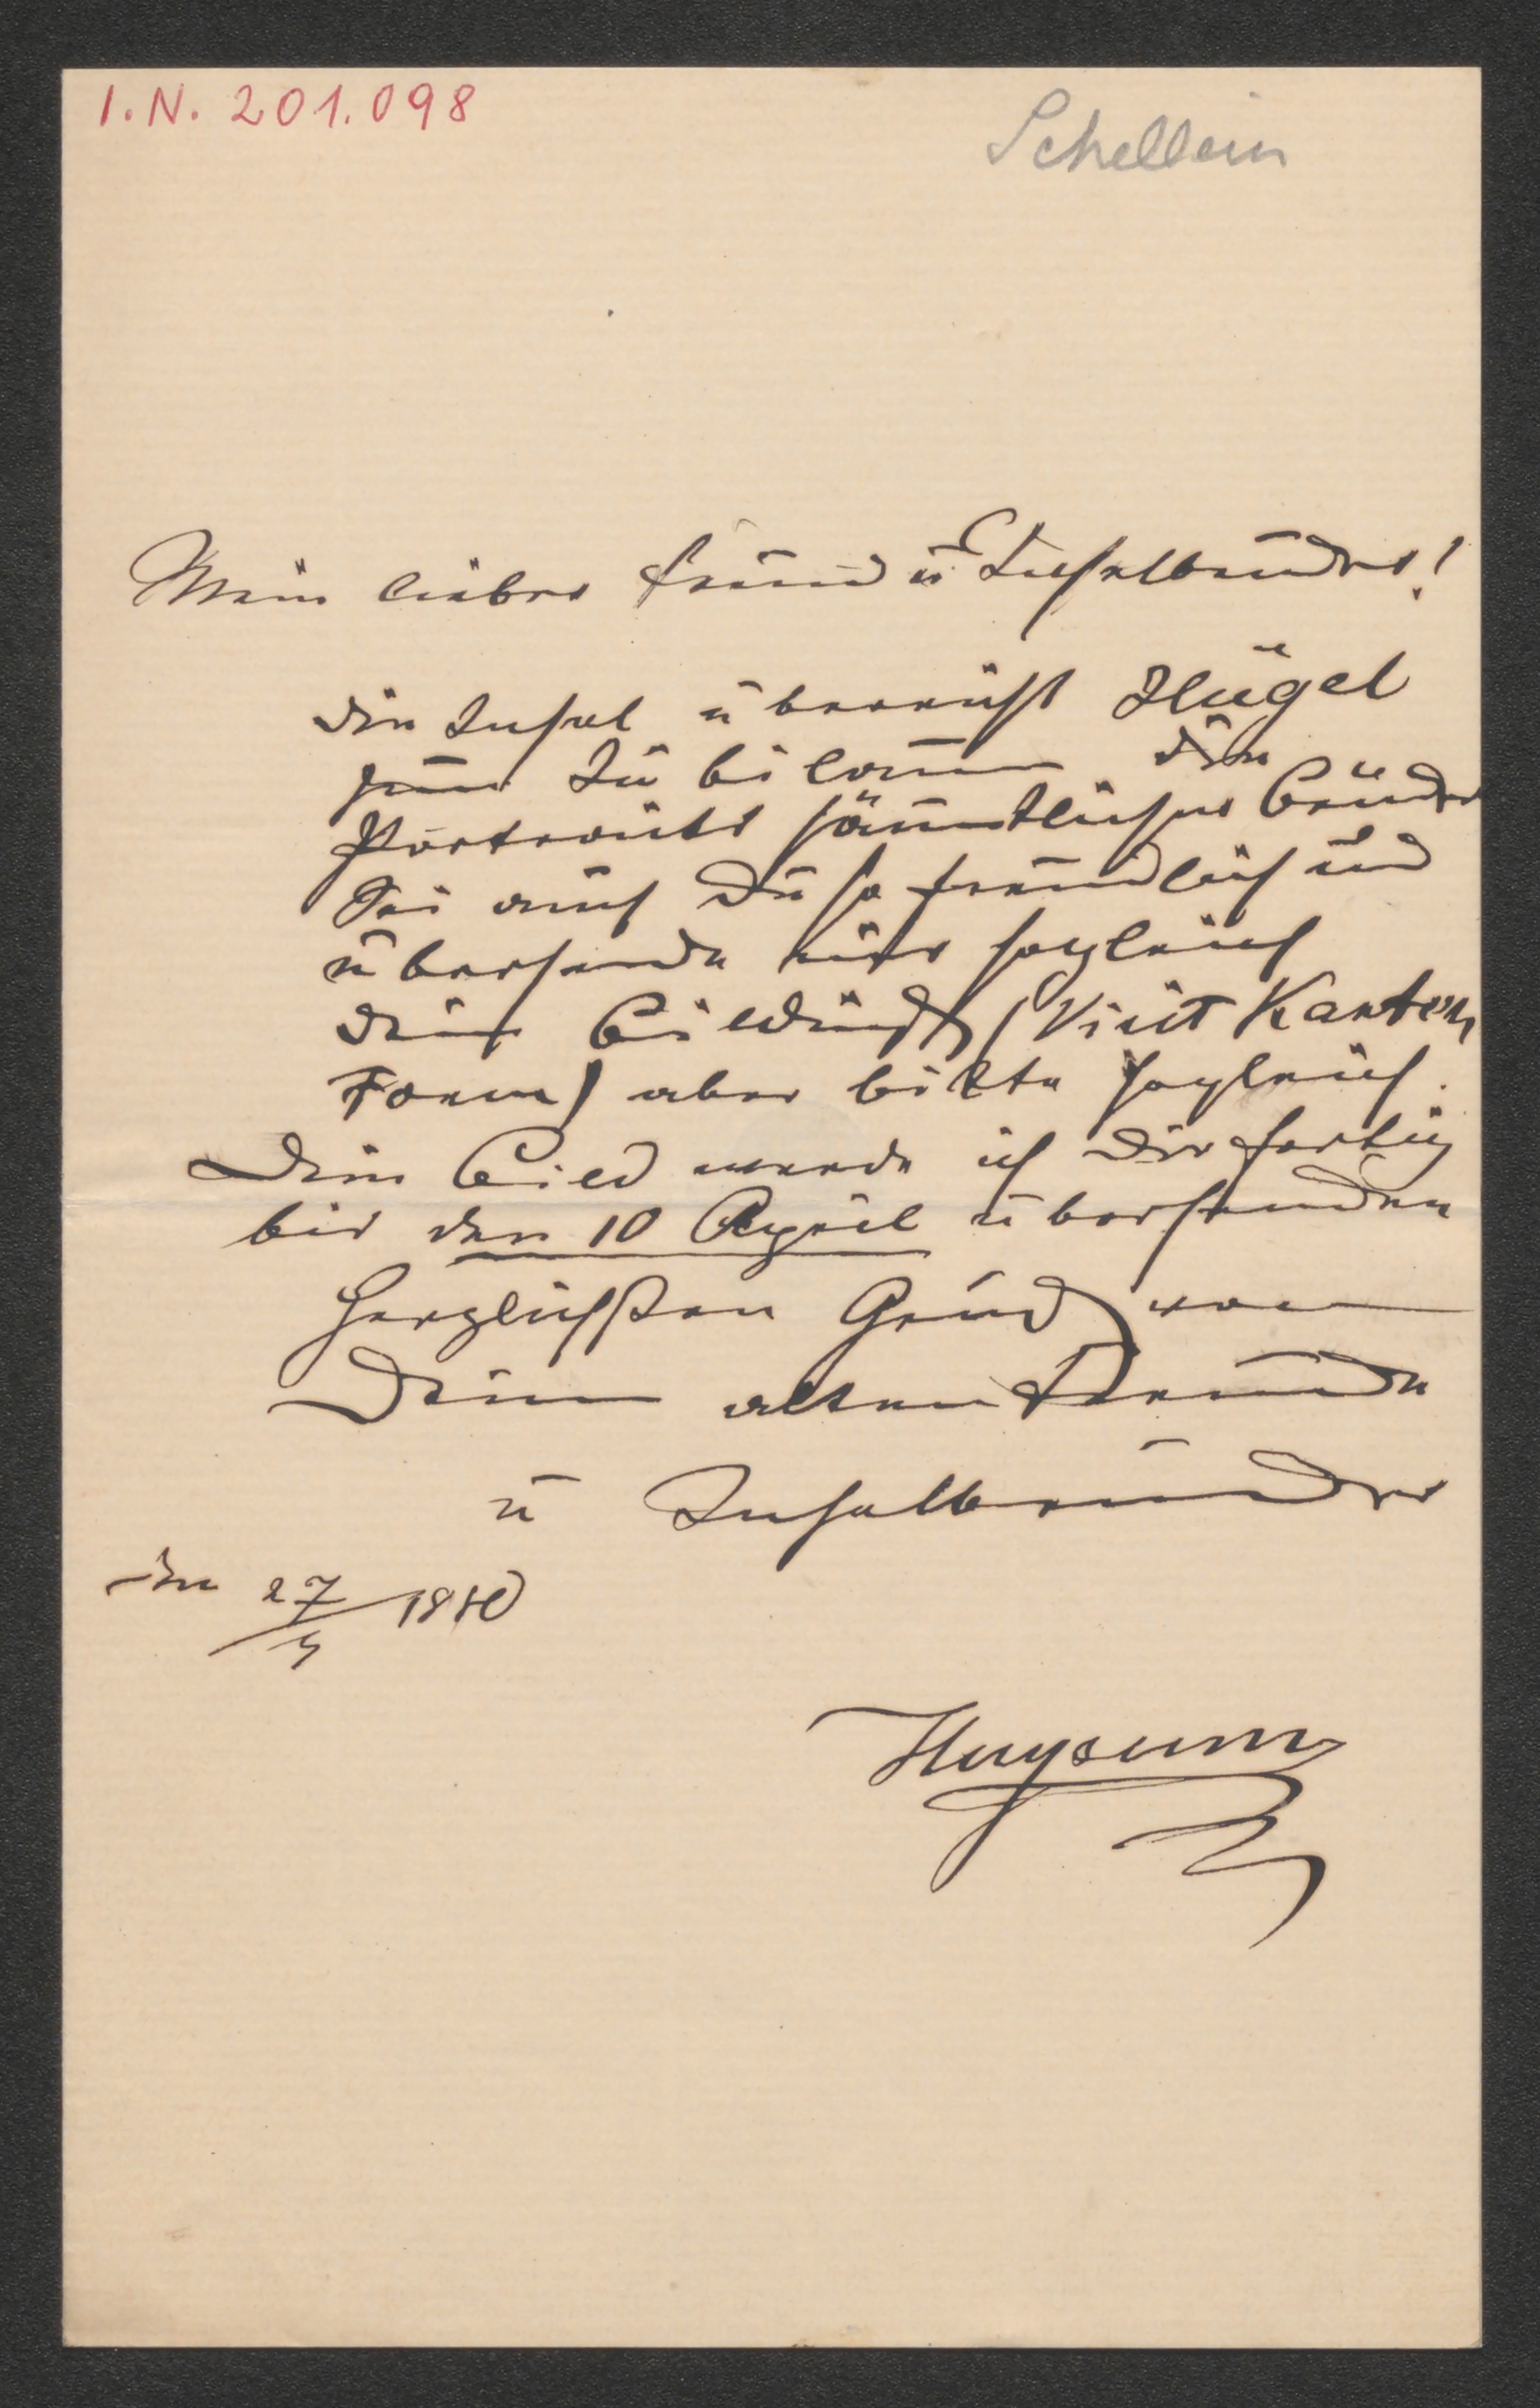 I.N. 201.098
Schellein
Mein lieber Freund u Inselbruder!
Die Insel überreicht Hügel
zum Jubiläum die
Portraits sämmtlicher Brüder
Sei auch Du so freundlich und
übersende mir sogleich
Dein Bildniß (Visit Karten
Form) aber bitte sogleich.
Dein Bild werde ich Dir fertig
bis den 10 April übersenden
Herzlichsten Gruß von
Deinem alten Freunde
u Inselbruder
den 27/3 1880
Huysum